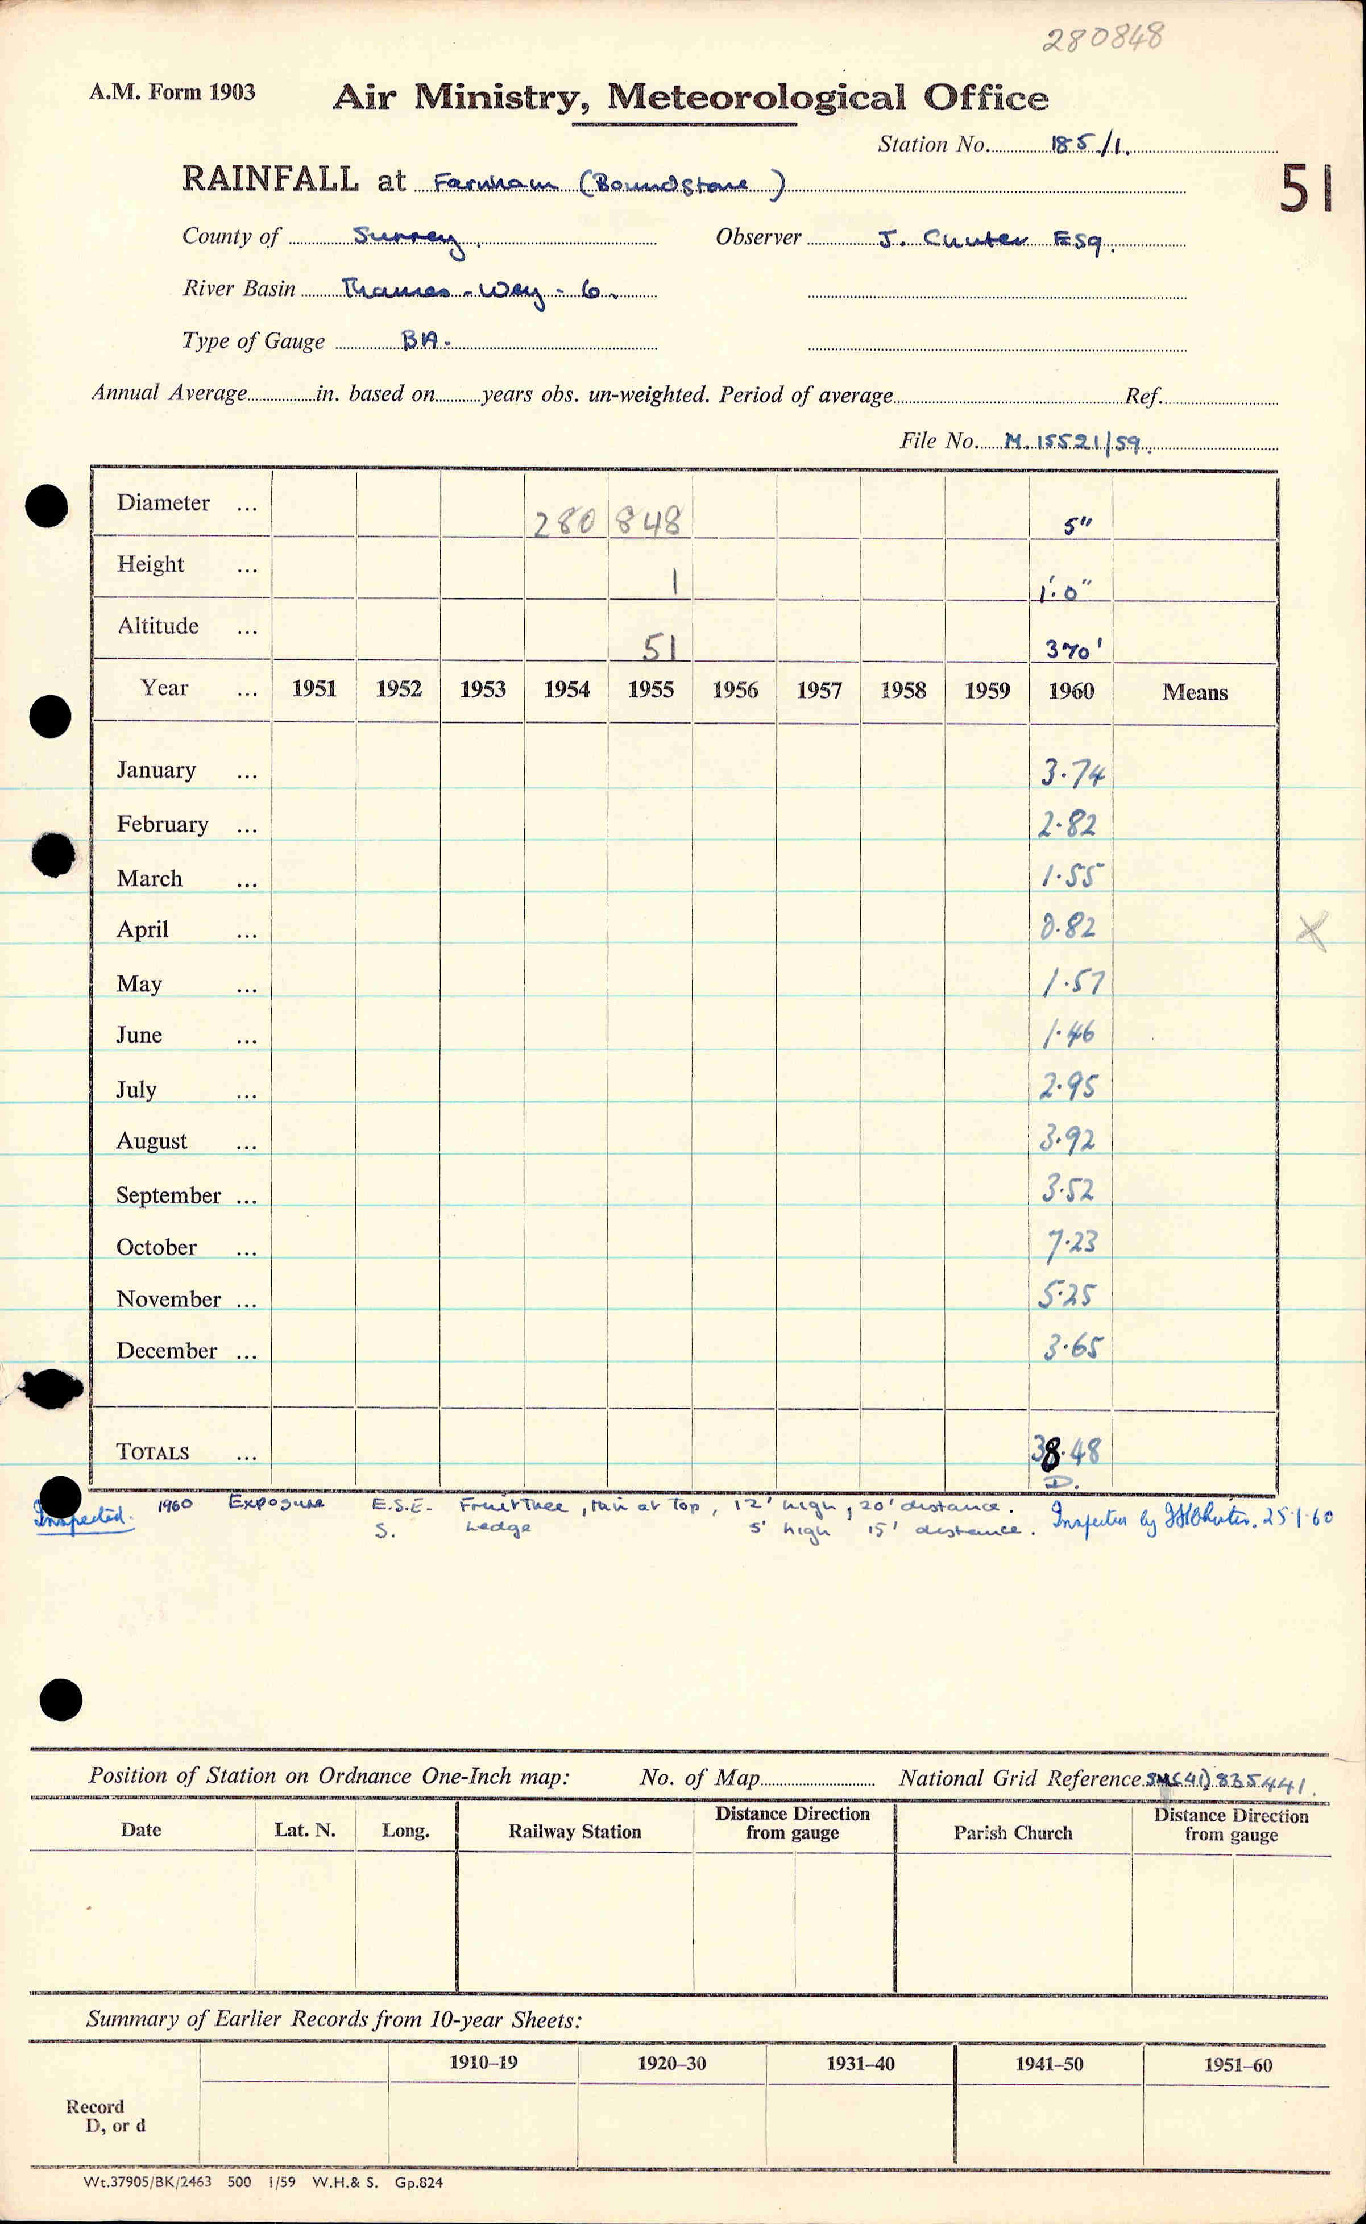 280848
A.M. Form 1903 Air Ministry, Meteorological Office
Station No. 185/1.
RAINFALL at Farnham (Boundstone) 51
County of Surrey. Observer J. Cunter Esq.
River Basin Thames - Wey - 6.
Type of Gauge BA.
Annual Average in. based on years obs. un-weighted. Period of average Ref.
File No. M. 15521/59.
Diameter ... 280 848 5"
Height ... 1 1'.0"
Altitude ... 51 370'
Year ... 1951 1952 1953 1954 1955 1956 1957 1958 1959 1960 Means
January ... 3.74
February ... 2.82
March ... 1.55
April ... 0.82 X
May ... 1.57
June ... 1.46
July ... 2.95
August ... 3.92
September ... 3.52
October ... 7.23
November ... 5.25
December ... 3.65
TOTALS ... 38.48
D.
Inspected. 1960 Exposure E.S.E. Fruit Tree, thin at top, 12' high, 20' distance.
S. hedge 5' high 15' distance. Inspected by 25.1.60
Position of Station on Ordnance One-Inch map: No. of Map National Grid Reference (41) 835441.
Date Lat. N. Long. Railway Station Distance Direction from gauge Parish Church Distance Direction from gauge
Summary of Earlier Records from 10-year Sheets:
1910–19 1920–30 1931–40 1941–50 1951–60
Record
D, or d
Wt.37905/BK/2463 500 1/59 W.H.& S. Gp.824